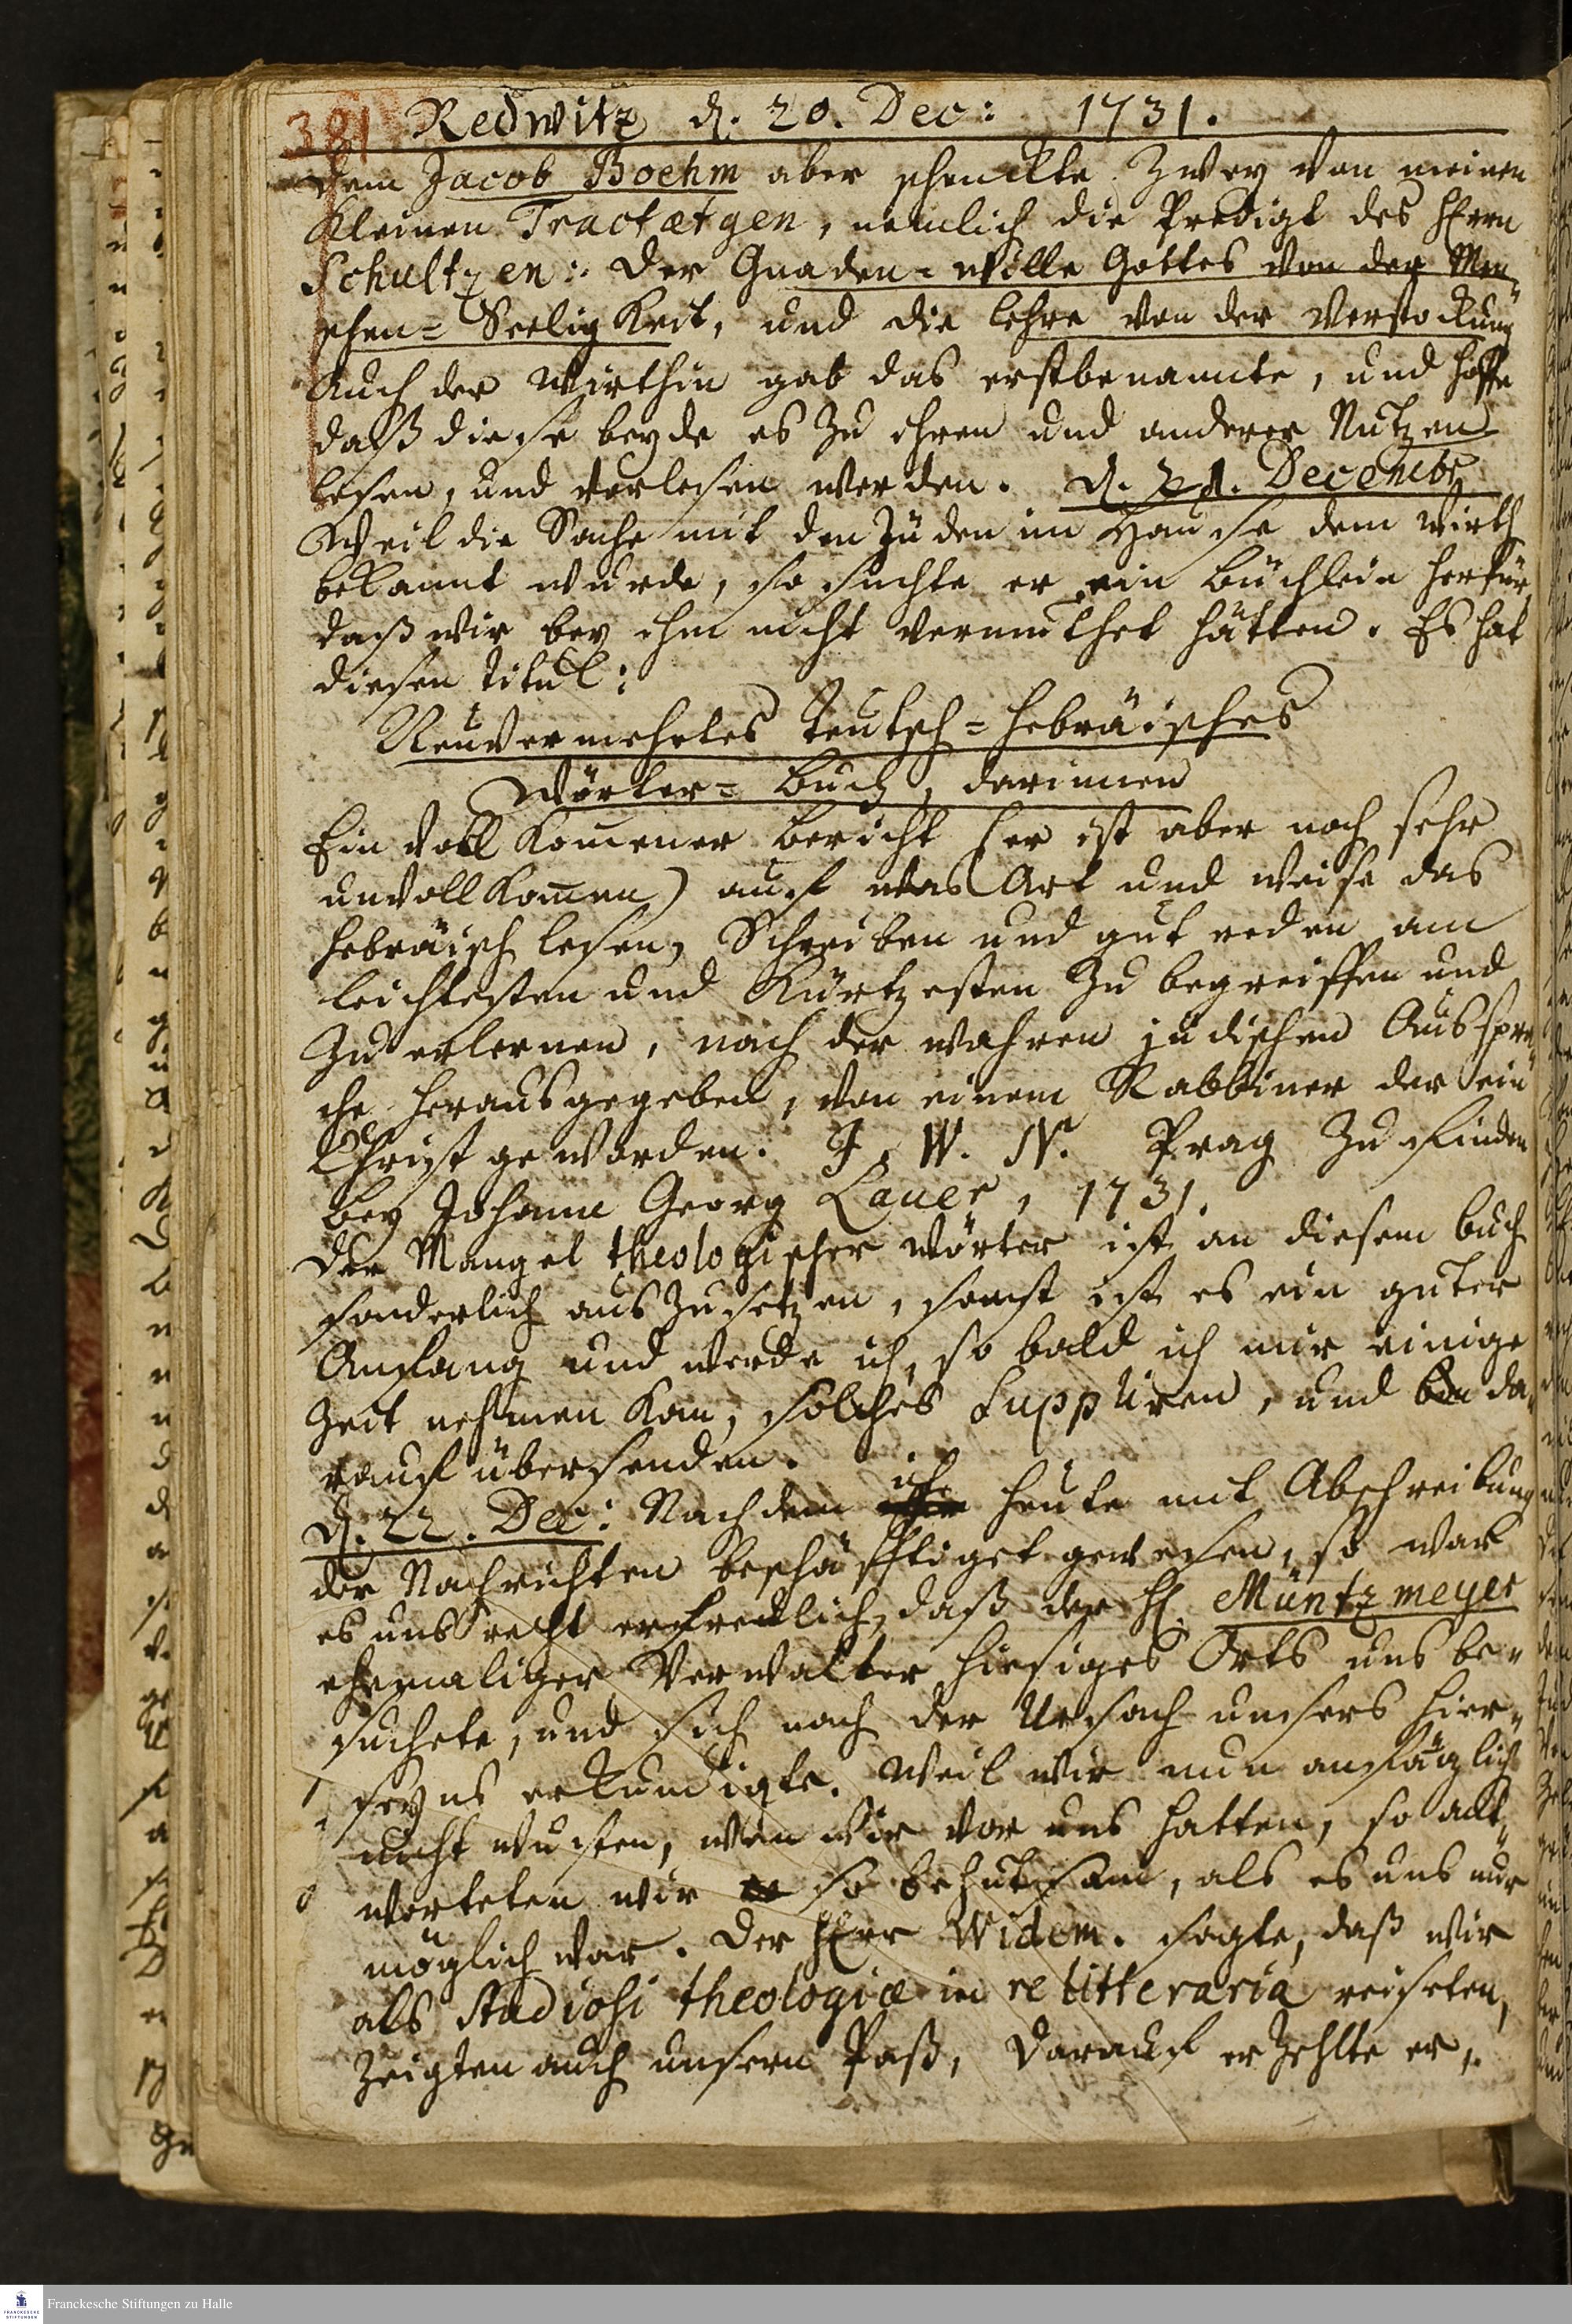 381 Redwitz d. 20. Dec: 1731.
Dem Jacob Boehm aber schenckte zwey von meinen
kleinen Tractætgen, nemlich die Predigt des Herrn
Schultzen: Der Gnaden-Wille Gottes von der Men-
schen-Seeligkeit, und die Lehre von der Verstockung
Auch der Wirthin gab das erstbenannte, und hoffe
daß diese beyde es zu ihren und anderer Nutzen
lesen, und verlesen werden. d. 21. Decembr
Weil die Sache mit den Jüden im Hause dem Wirth
bekannt wurde, so suchte er ein Büchlein herfür,
daß wir bey ihm nicht vermuthet hätten. Es hat
diesen Titul:
Neuvermehrtes Teutsch-Hebräisches
Wörter-Buch, darinnen
Ein vollkom̃ener Bericht (er ist aber noch sehr
unvollkom̃en) auf was Art und Weise das
Hebräisch lesen, Schreiben und gut reden am
leichtesten und Kürtzesten zu begreiffen und
zu erlernen, nach der wahren jüdischen Ausspra-
che herausgegeben, von einem Rabbiner der ein
Christ geworden. J. W. N. Prag zu finden
bey Johann Georg Lauer, 1731.
Der Mangel theologischer Wörter ist an diesem Buch
sonderlich auszusetzen, sonst ist es ein guter
Anfang und werde ich, so bald ich mir einige
Zeit nehmen kan, solches suppliren, und da-
rauf übersenden.
d. 22. Dec: Nachdem ich heute mit Abschreibung
der Nachrichten beschäfftiget gewesen, so war
es uns recht erfreulich, daß der H. Müntzmeyer
ehemaliger Verwalter hiesiges Orts uns be-
suchete, und sich nach der Ursach unsers Hier-
seyns erkundigte. Weil wir nun anfänglich
nicht wusten, wen wir vor uns hatten, so ant-
worteten wir so behutsam, als es uns nur
möglich war. Der Herr Widem. sagte, daß wir
als Studiosi theologiæ in re litteraria reiseten,
zeigten auch unsern Paß, darauf erzehlte er,
Franckesche Stiftungen zu Halle